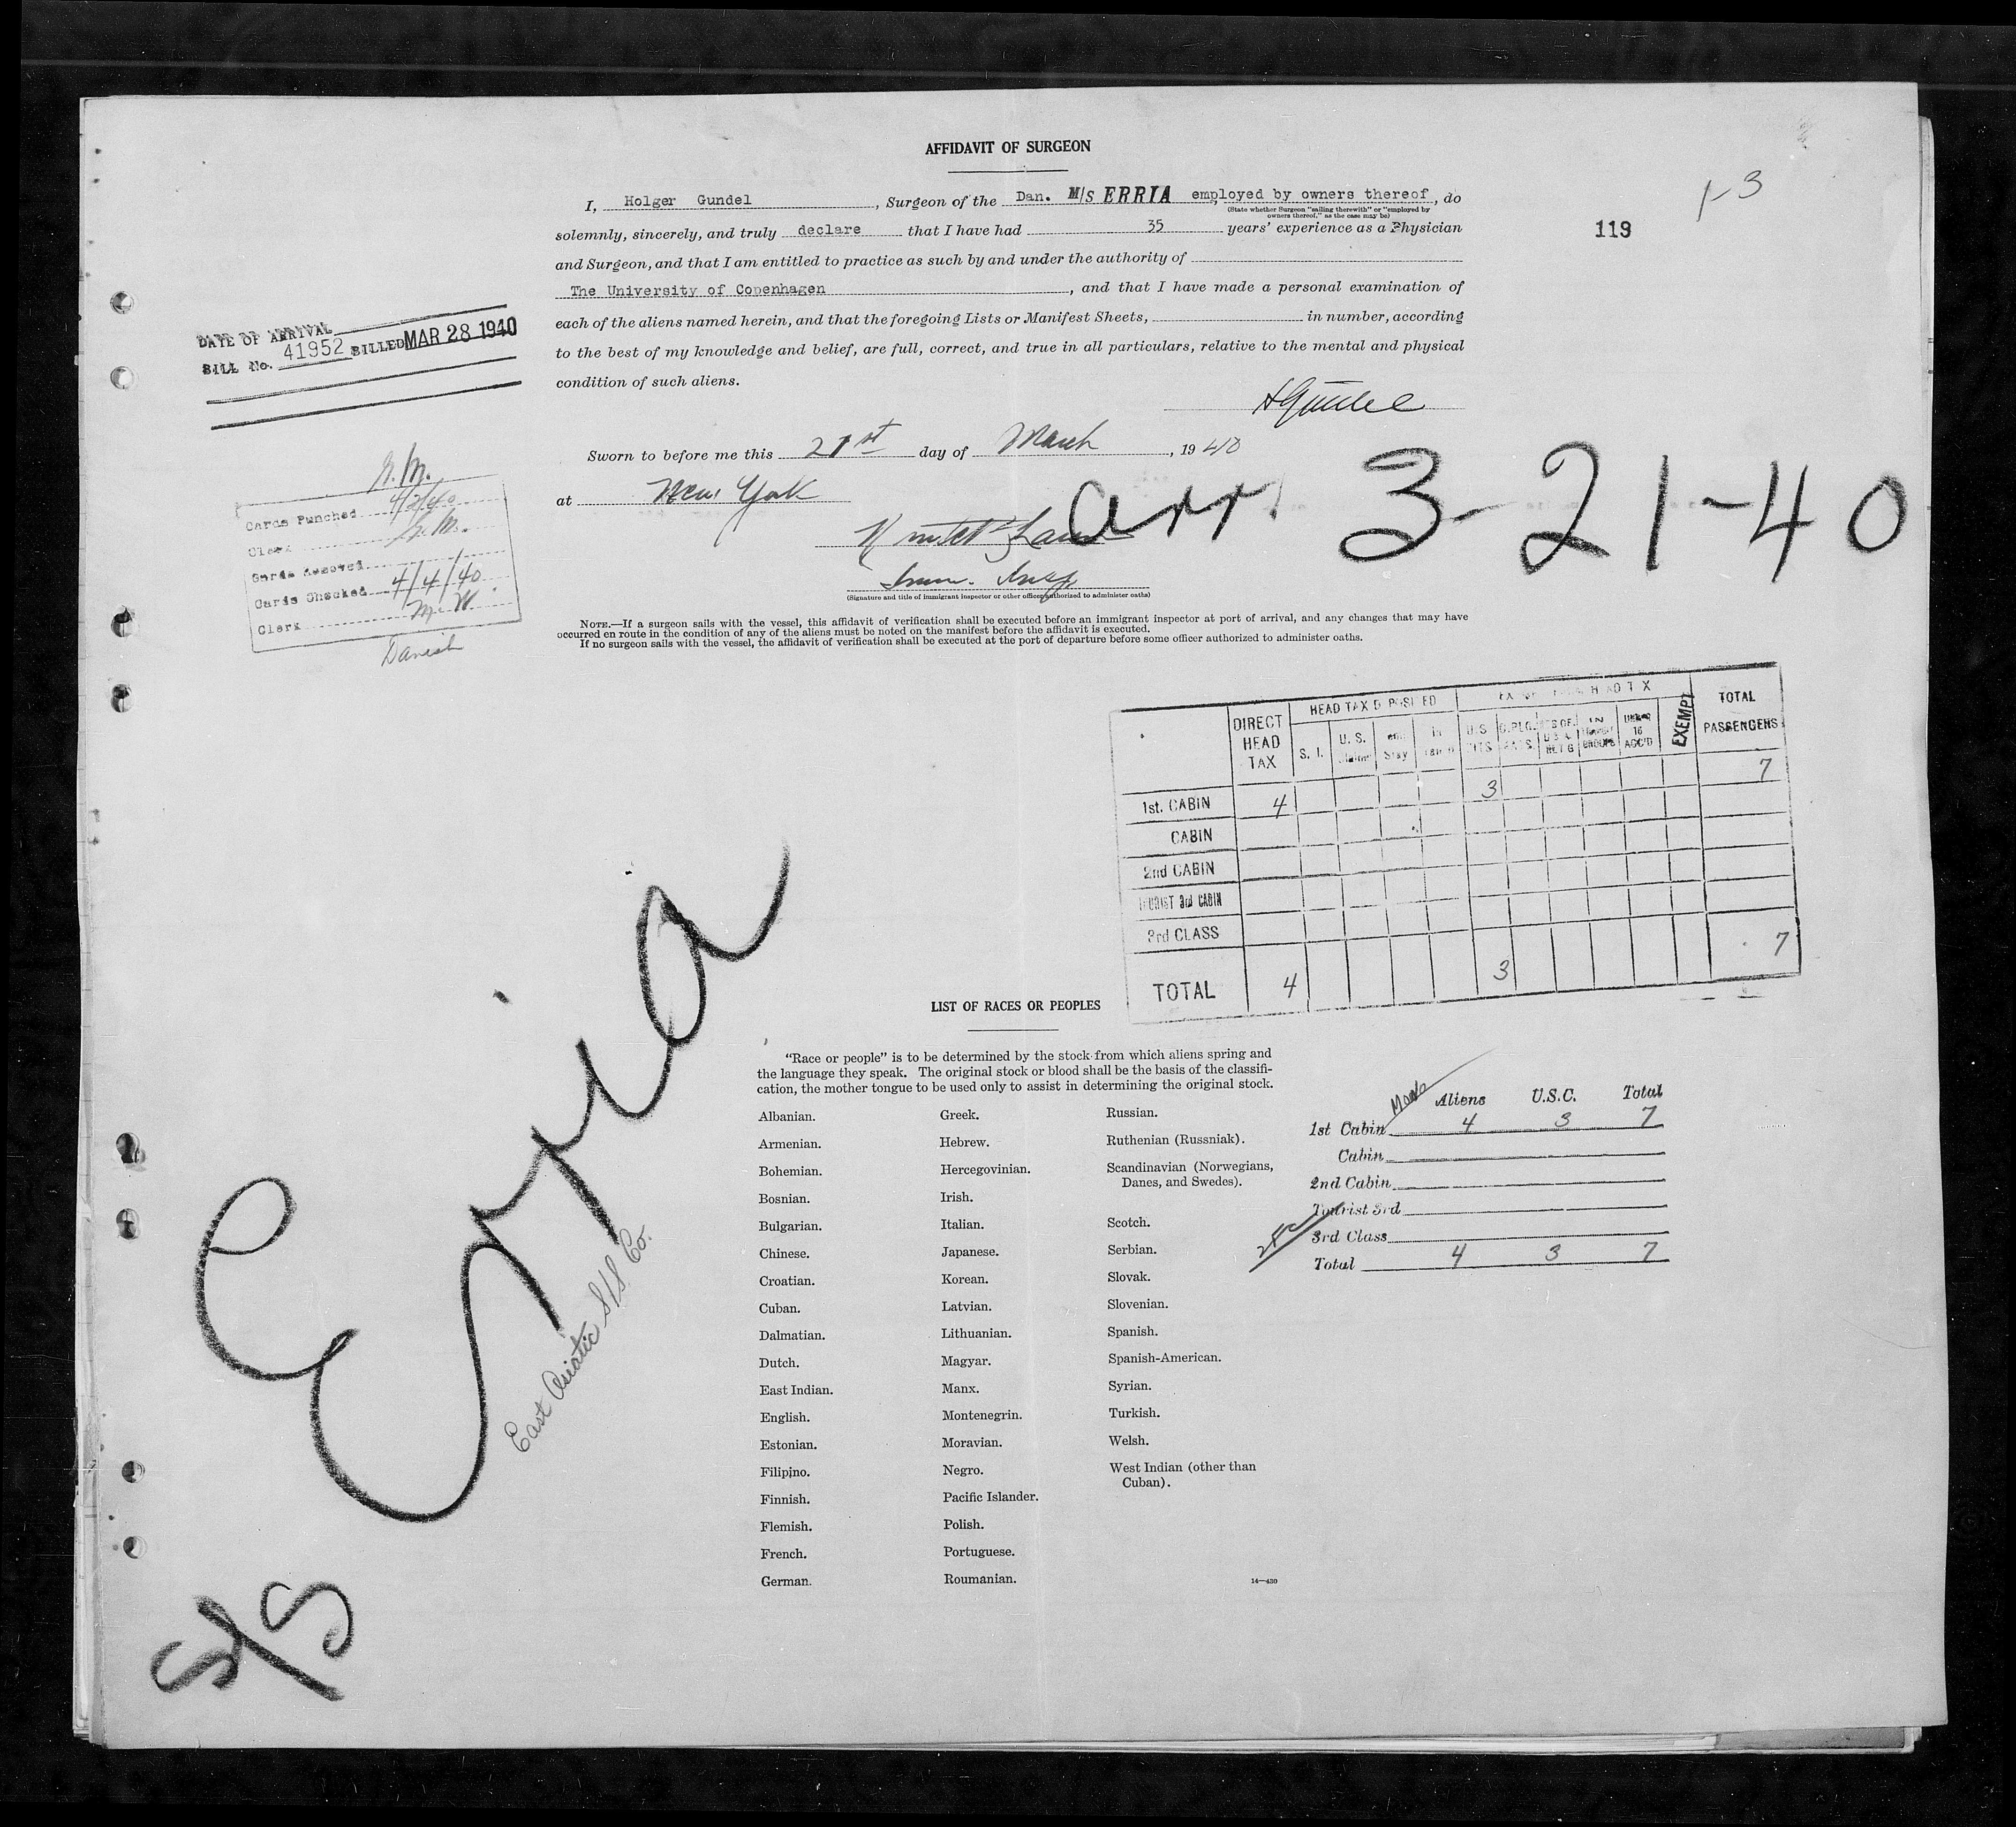 AFFIDAVIT OF SURGEON
1-3
119
I, Holger Gundel, Surgeon of the Dan. M/S ERRIA employed by owners thereof, do
(State whether Surgeon "sailing therewith" or "employed by
owners thereof," as the case may be)
solemnly, sincerely, and truly declare that I have had 35 years' experience as a Physician
and Surgeon, and that I am entitled to practice as such by and under the authority of
The University of Copenhagen, and that I have made a personal examination of
each of the aliens named herein, and that the foregoing Lists or Manifest Sheets, in number, according
to the best of my knowledge and belief, are full, correct, and true in all particulars, relative to the mental and physical
condition of such aliens.
DATE OF ARRIVAL
BILL No. 41952 BILLED MAR 28 1940
HGundel
Sworn to before me this 21st day of March, 1940
at New York
arr. 3-21-40
Imm. Insp.
(Signature and title of immigrant inspector or other officer authorized to administer oaths)
Cards Punched 4/2/40
Clerk
Cards Removed
Cards Checked 4/4/40
Clerk M. W.
Danish
NOTE.—If a surgeon sails with the vessel, this affidavit of verification shall be executed before an immigrant inspector at port of arrival, and any changes that may have
occurred en route in the condition of any of the aliens must be noted on the manifest before the affidavit is executed.
If no surgeon sails with the vessel, the affidavit of verification shall be executed at the port of departure before some officer authorized to administer oaths.
DIRECT HEAD TAX
S. I. U. S.
EXEMPT
TOTAL PASSENGERS
7
1st. CABIN 4 3
CABIN
2nd CABIN
TOURIST 3rd CABIN
3rd CLASS
7
TOTAL 4 3
S/S Erria
East Asiatic S/S Co.
LIST OF RACES OR PEOPLES
"Race or people" is to be determined by the stock from which aliens spring and
the language they speak. The original stock or blood shall be the basis of the classifi-
cation, the mother tongue to be used only to assist in determining the original stock.
Albanian.
Armenian.
Bohemian.
Bosnian.
Bulgarian.
Chinese.
Croatian.
Cuban.
Dalmatian.
Dutch.
East Indian.
English.
Estonian.
Filipino.
Finnish.
Flemish.
French.
German.
Greek.
Hebrew.
Hercegovinian.
Irish.
Italian.
Japanese.
Korean.
Latvian.
Lithuanian.
Magyar.
Manx.
Montenegrin.
Moravian.
Negro.
Pacific Islander.
Polish.
Portuguese.
Roumanian.
Russian.
Ruthenian (Russniak).
Scandinavian (Norwegians,
Danes, and Swedes).
Scotch.
Serbian.
Slovak.
Slovenian.
Spanish.
Spanish-American.
Syrian.
Turkish.
Welsh.
West Indian (other than
Cuban).
14—430
Aliens U.S.C. Total
1st Cabin 4 3 7
Cabin
2nd Cabin
Tourist 3rd
3rd Class
Total 4 3 7